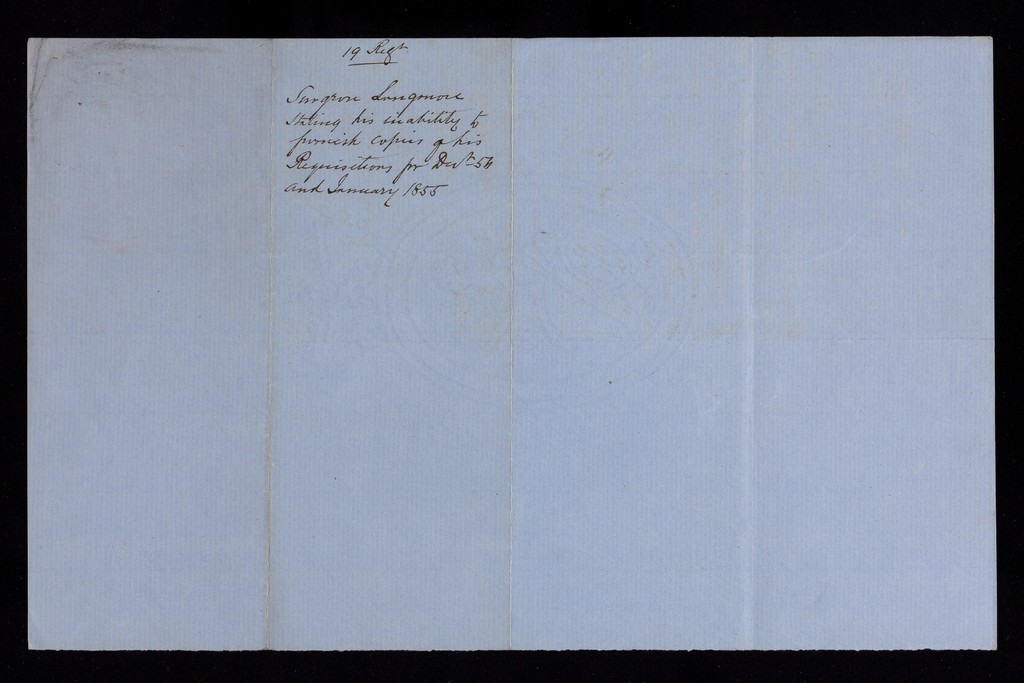 19 Regt
Surgeon Longmore
Stating his inability to
furnish copies of his
Requisitions for Decr 54
and January 1855